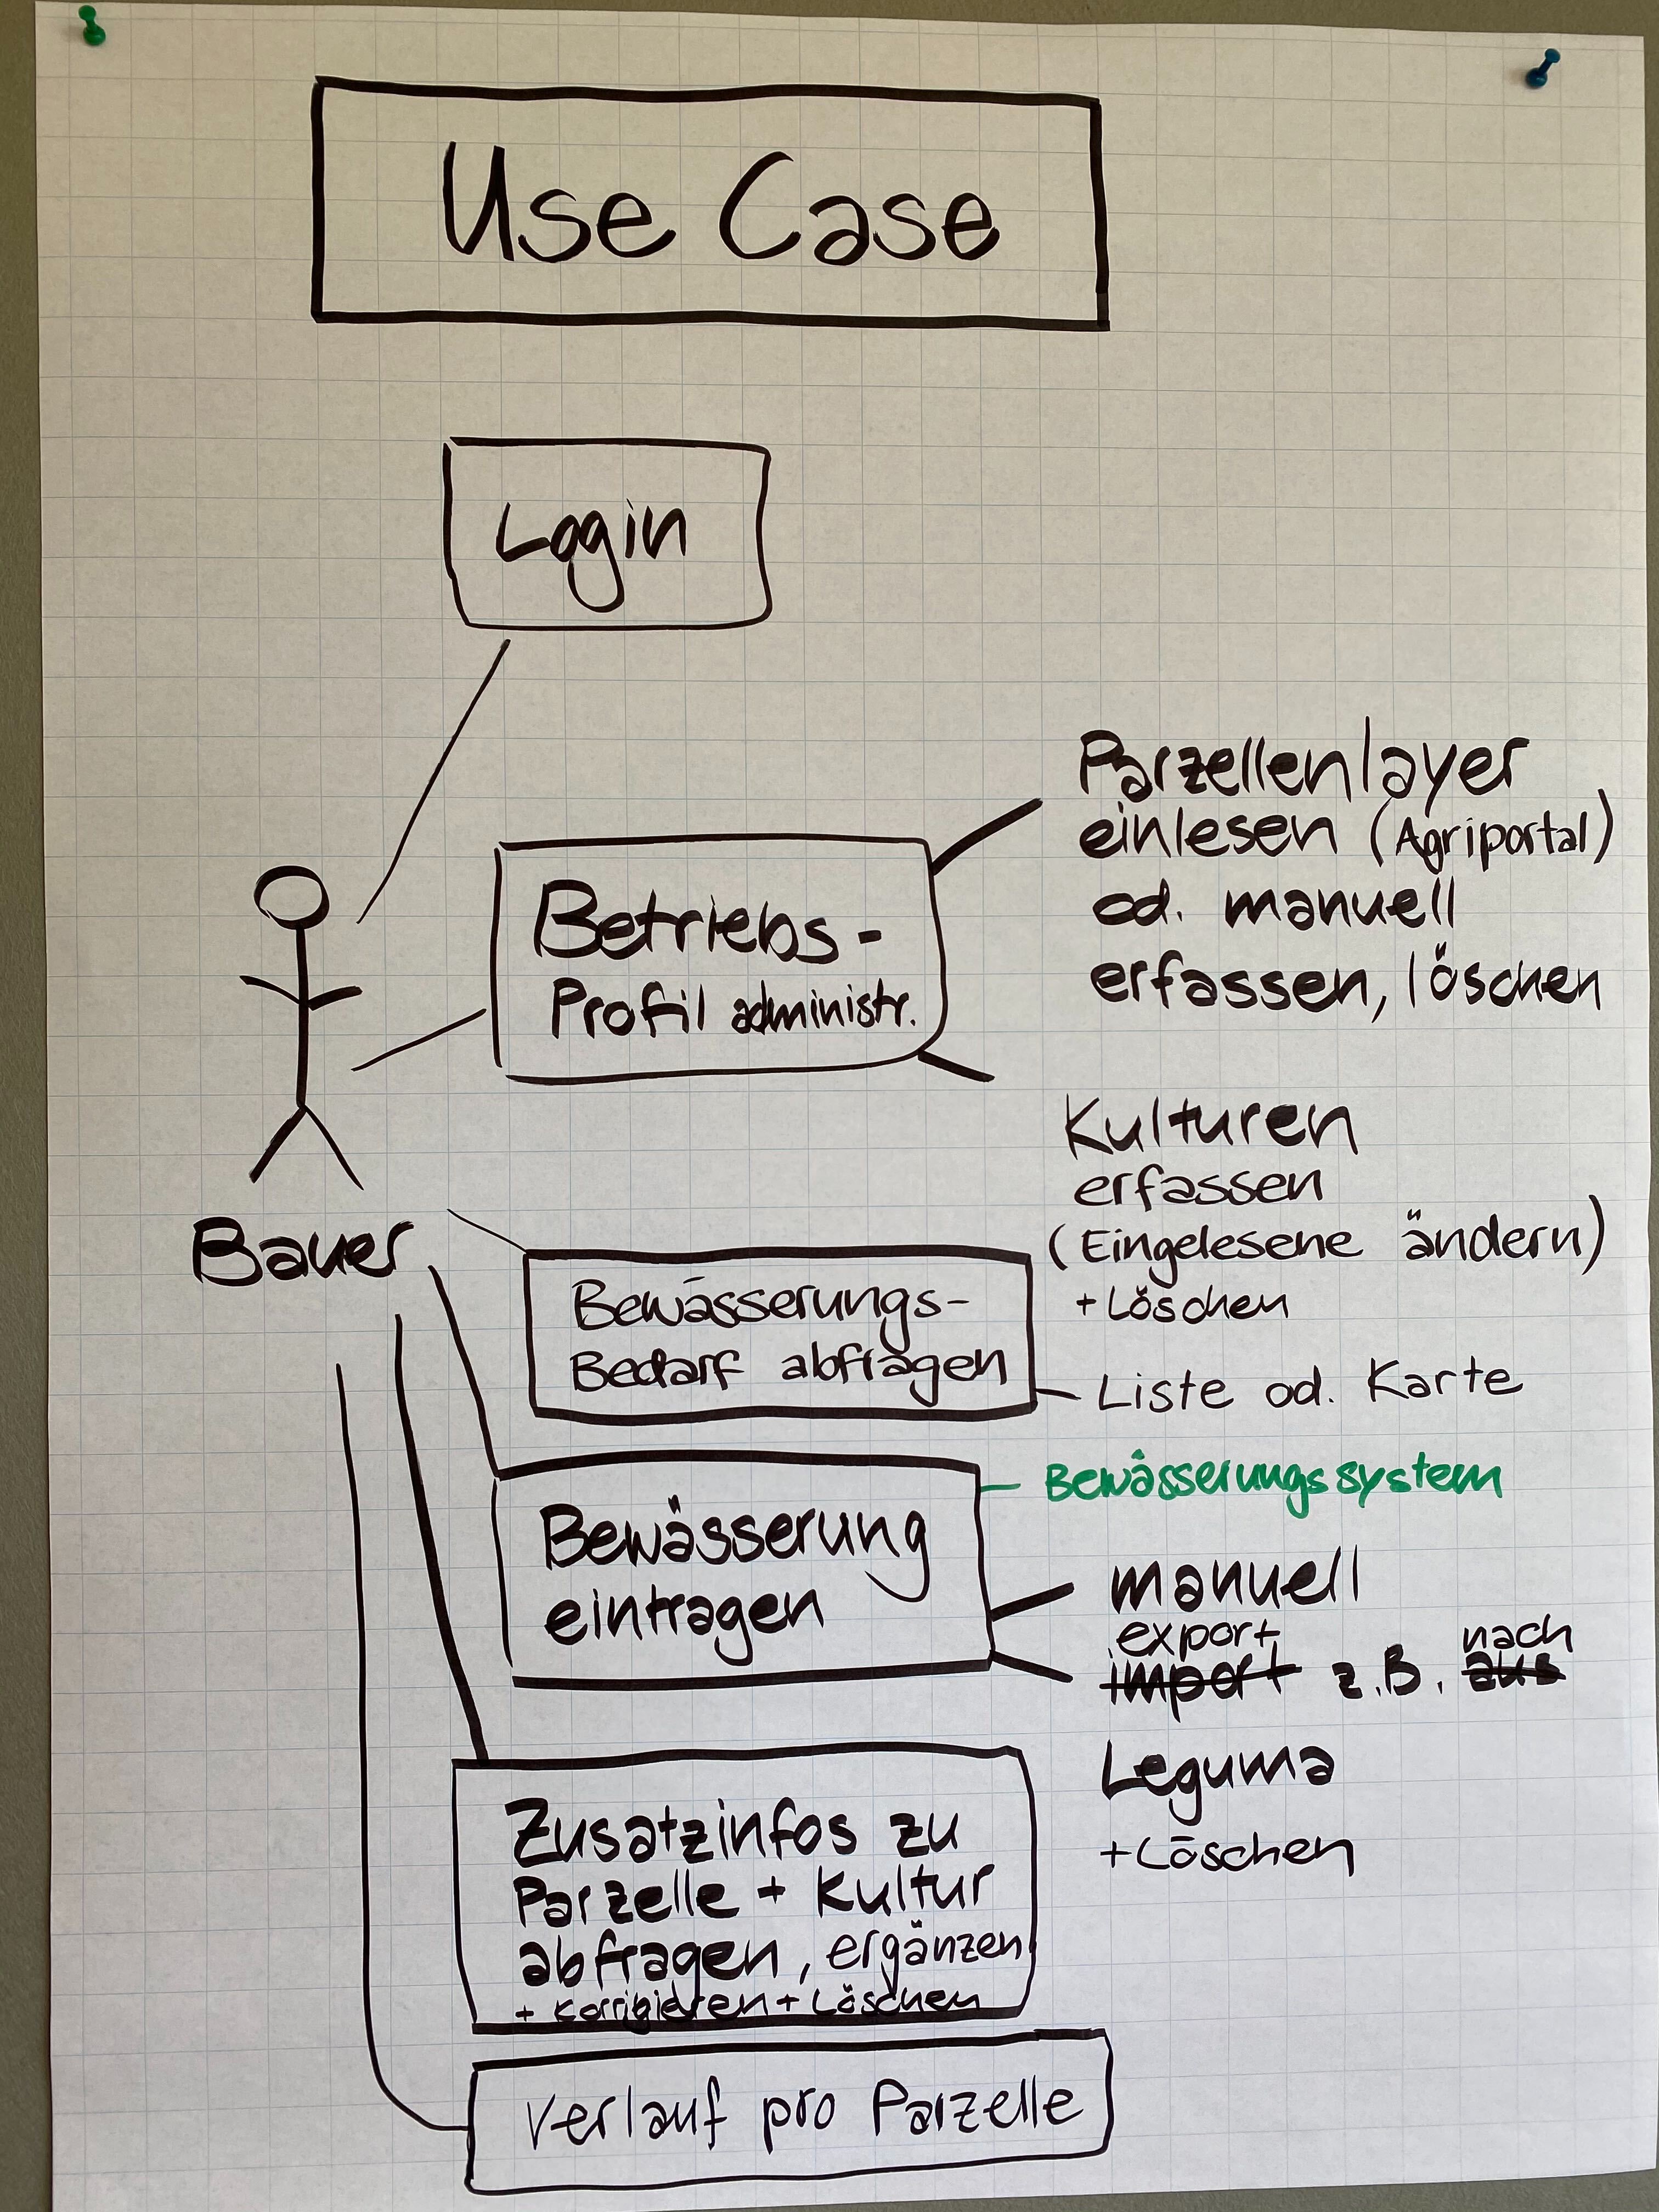 Use Case
Login
Betriebs-
Profil administr.
Parzellenlayer
einlesen (Agriportal)
od. manuell
erfassen, löschen
Kulturen
erfassen
(Eingelesene ändern)
+ Löschen
Bauer
Bewässerungs-
Bedarf abfragen
Liste od. Karte
Bewässerung
eintragen
Bewässerungssystem
manuell
export nach
import z.B. aus
Leguma
+ Löschen
Zusatzinfos zu
Parzelle + Kultur
abfragen, ergänzen
+ korrigieren + Löschen
Verlauf pro Parzelle